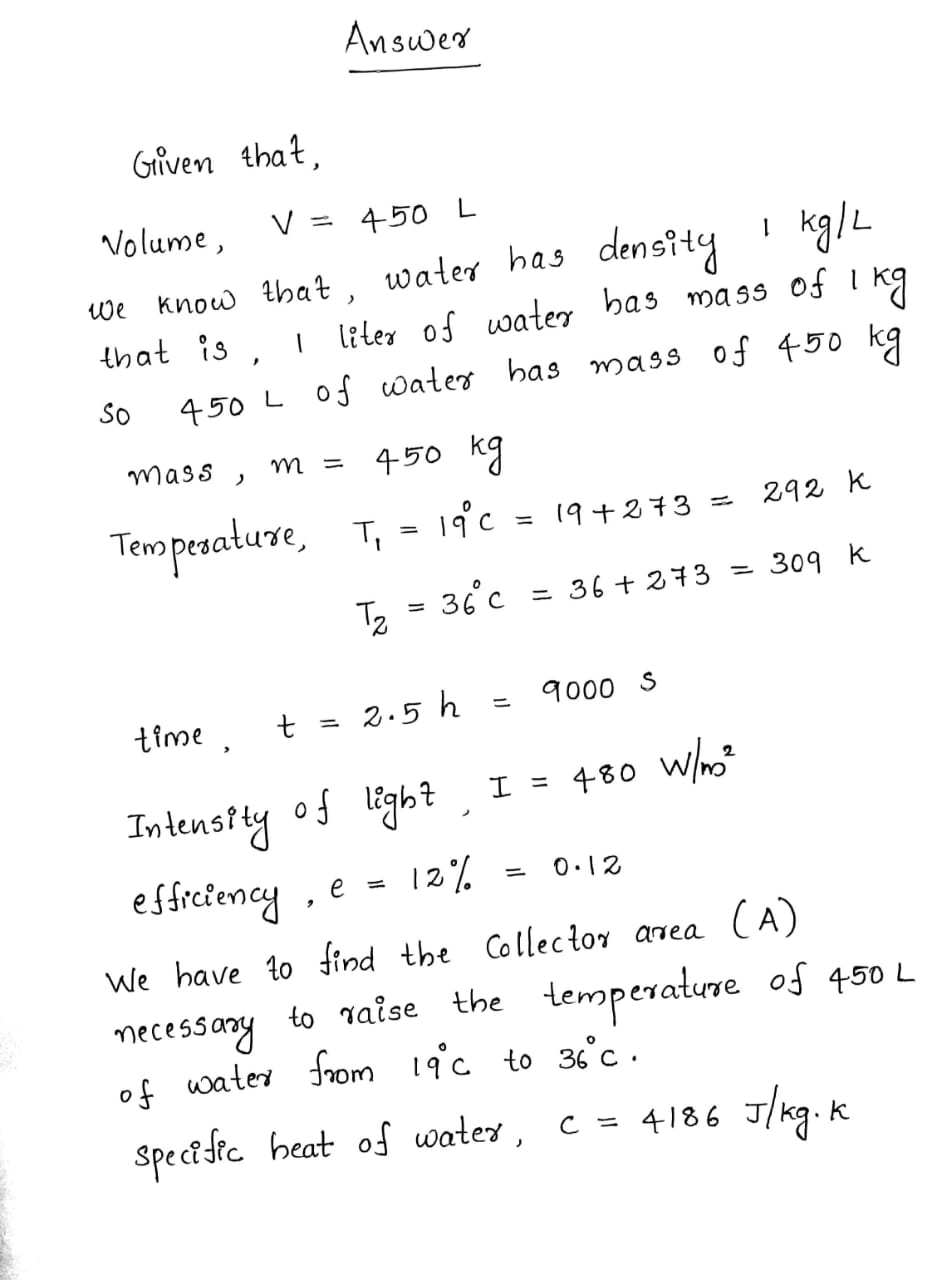 Answer
Given that,
Volume, V = 450 L
we know that, water has density 1 kg/L
that is, 1 liter of water has mass of 1 kg
so 450 L of water has mass of 450 kg
mass, m = 450 kg
Temperature, T₁ = 19°C = 19+273 = 292 K
T₂ = 36°C = 36+273 = 309 K
time, t = 2.5 h = 9000 s
Intensity of light, I = 480 W/m²
efficiency, e = 12% = 0.12
We have to find the Collector area (A)
necessary to raise the temperature of 450 L
of water from 19°C to 36°C.
Specific heat of water, C = 4186 J/kg.K